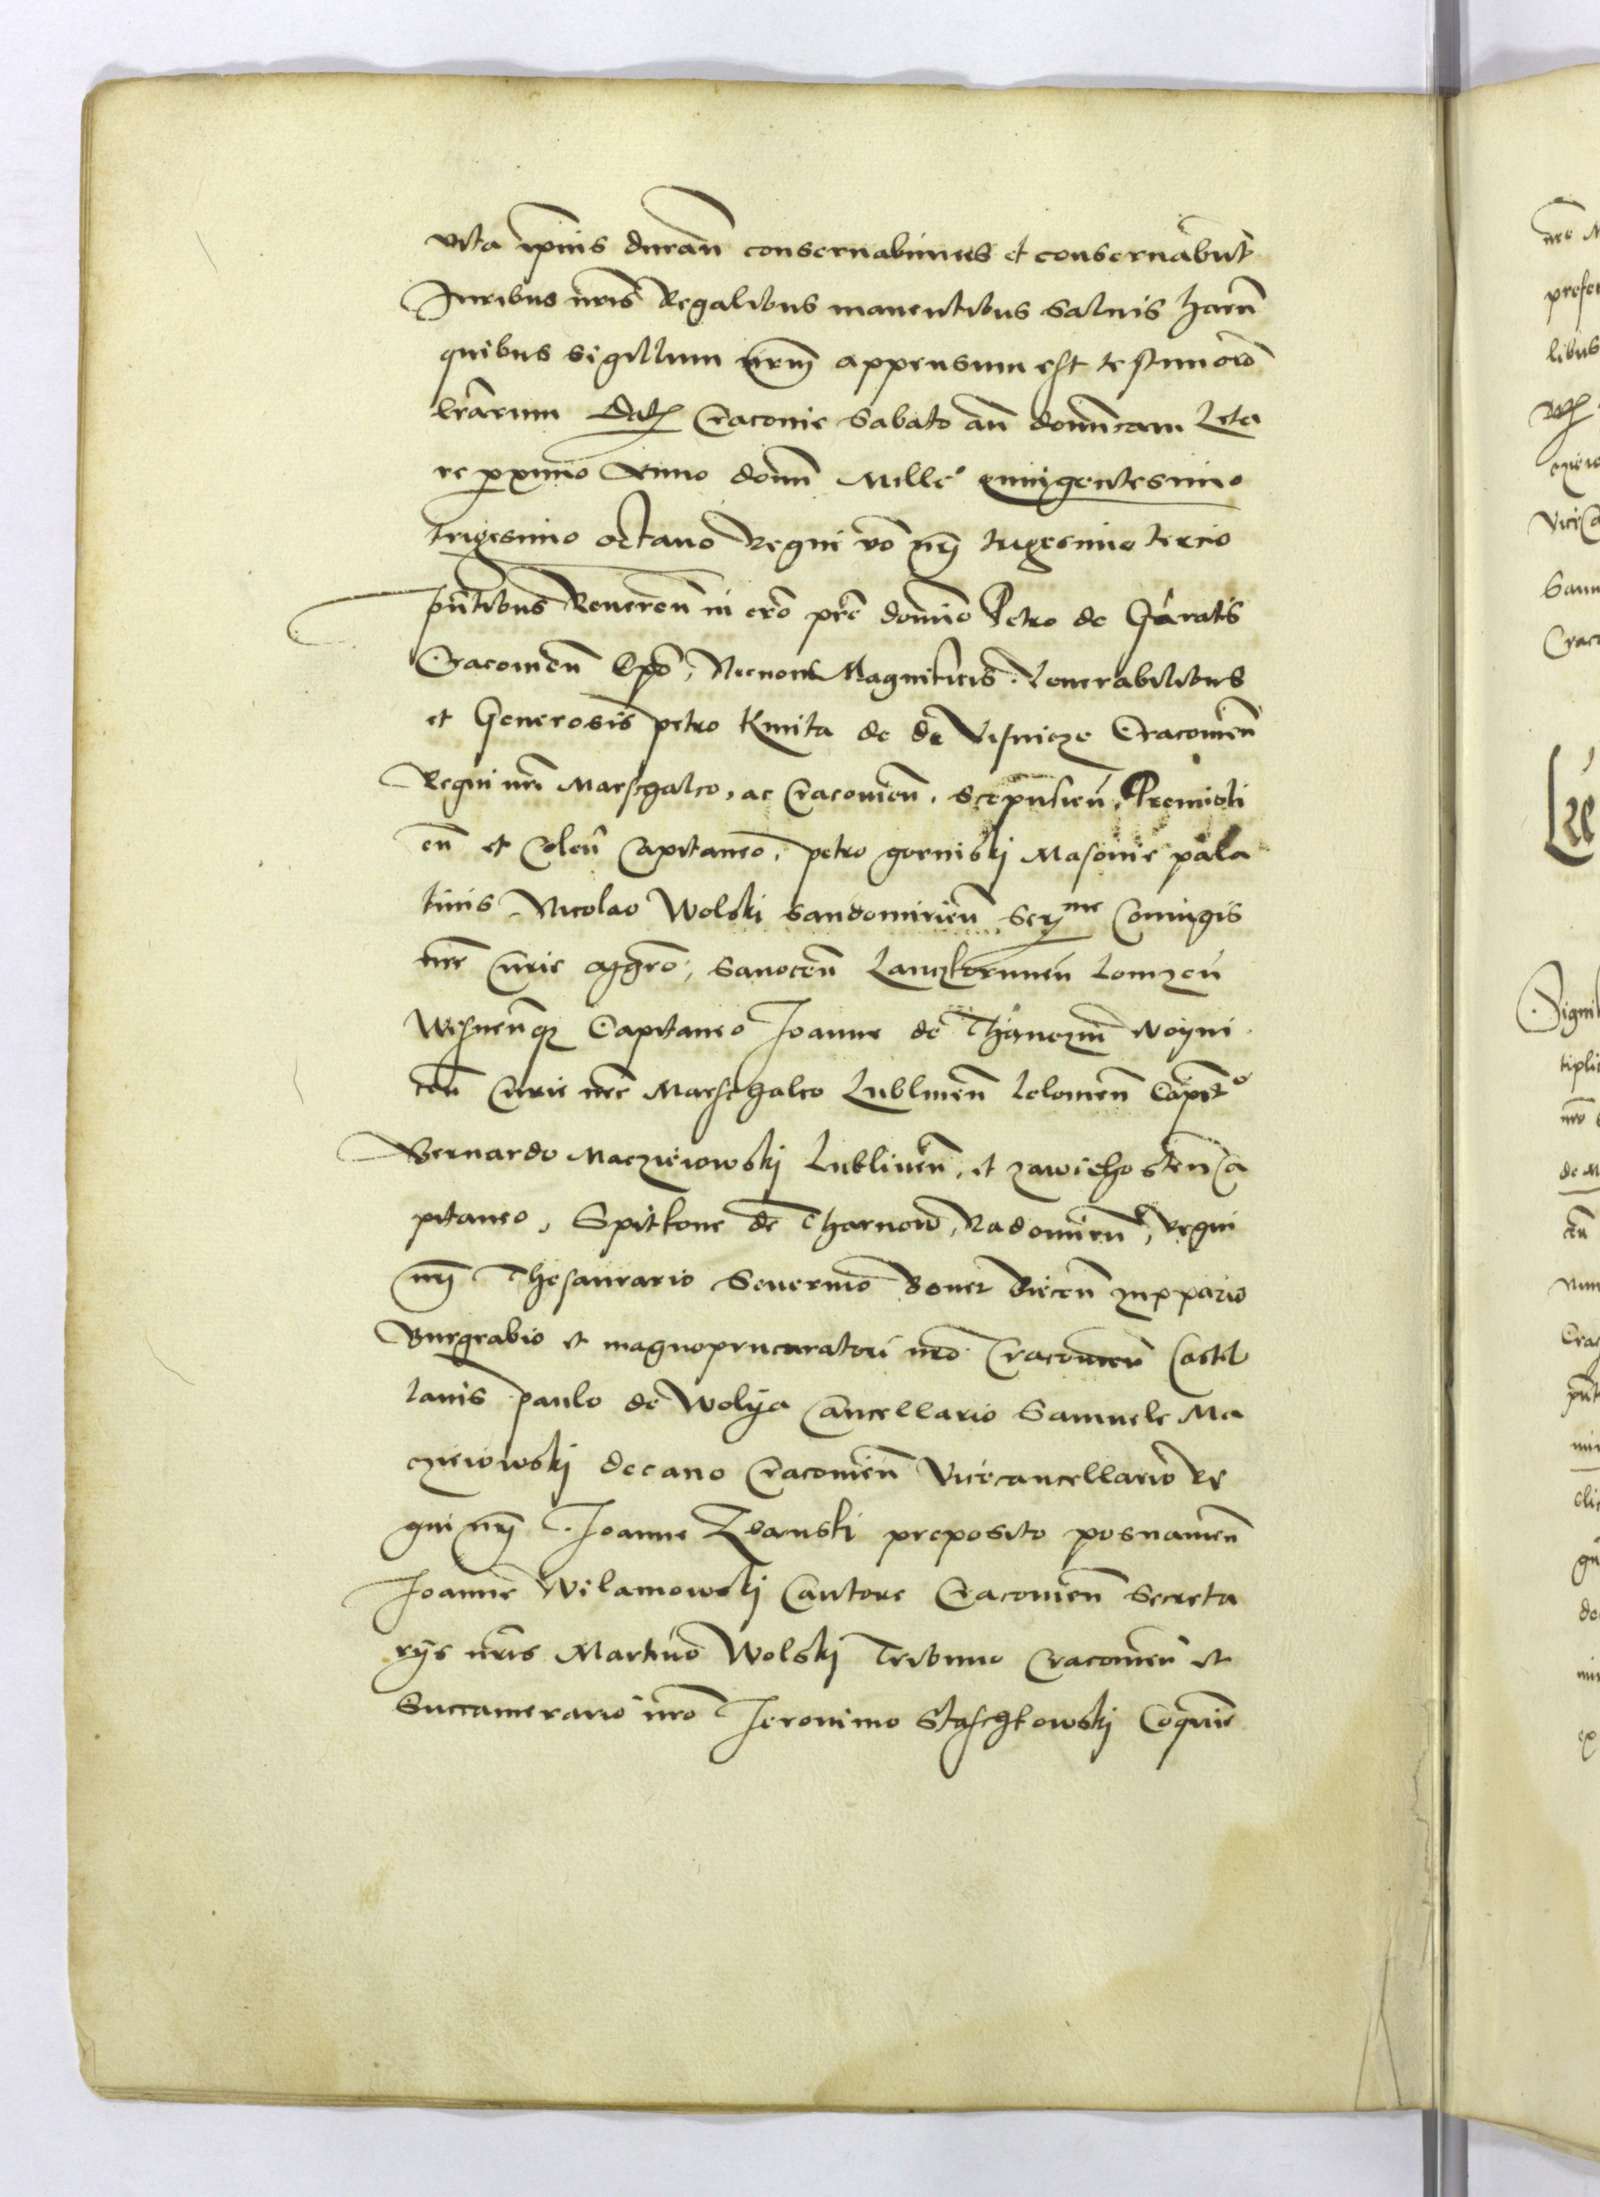 vita ip̃ius durañ conservabimus et conservabũt
Iuribus nr̃is Regalibus manentibus salvis harũ
quibus sigillum nr̃um appensum est testimõio
lr̃arum Dat̃ Cracovie Sabato añ domĩcam Leta
re proximo Anno domĩ Mill̃o quingentesimo
trigesimo octavo Regni vo nrĩ trigesimo tercio
pñtibus Reveren̄ in cr̃o pr̃e domino Petro de Gamratis
Cracovieñ Ep̃o, Necnon Magnificis. Venerabilibus
et Generosis petro Kmita de de Visnicze Cracovieñ
Regni nr̃i Marschalco, ac Cracovieñ. Scepusieñ, Premisli
eñ et Coleñ Capitaneo, petro gorniski Masovie pala
tinis Nicolao Wolski Sandomirieñ Ser me Coniugis
nr̃e Curie Mgr̃o, Sanoceñ Lanczkorunieñ Lomzeñ
Wysneñq Capitaneo Joanne de Thanczin̄ Woyni
ceñ Curie nr̃e Marschalco Lublineñ Leloineñ Capit̃o
Bernardo Macziejowski Lublineñ, et zawichosteñ Ca
pitaneo, Spitkone de Tharnow, Radomieñ, Regni
nrĩ Thesaurario Severino Boner Bieceñ zuppario
Burgrabio et magnoprucuratori nr̃o Cracovieñ Castel
lanis paulo de Wolya Cancellario Samuele Ma
cziejowski decano Cracovieñ Vicecancellario Re
gni nrĩ Joanne Zdanski preposito posnanieñ
Joanne Wilamowski Cantore Cracovieñ Secreta
rijs nr̃is Martino Wolski Tribuno Cracovieñ et
Succamerario nr̃o Jeronimo Staschkowski Coquie